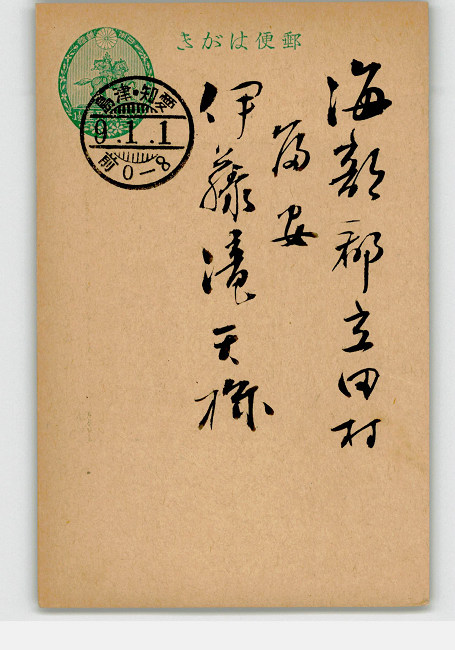 郵便はがき
愛知・津島
9.1.1
前0-8
海部郡立田村
富安
伊藤 天様